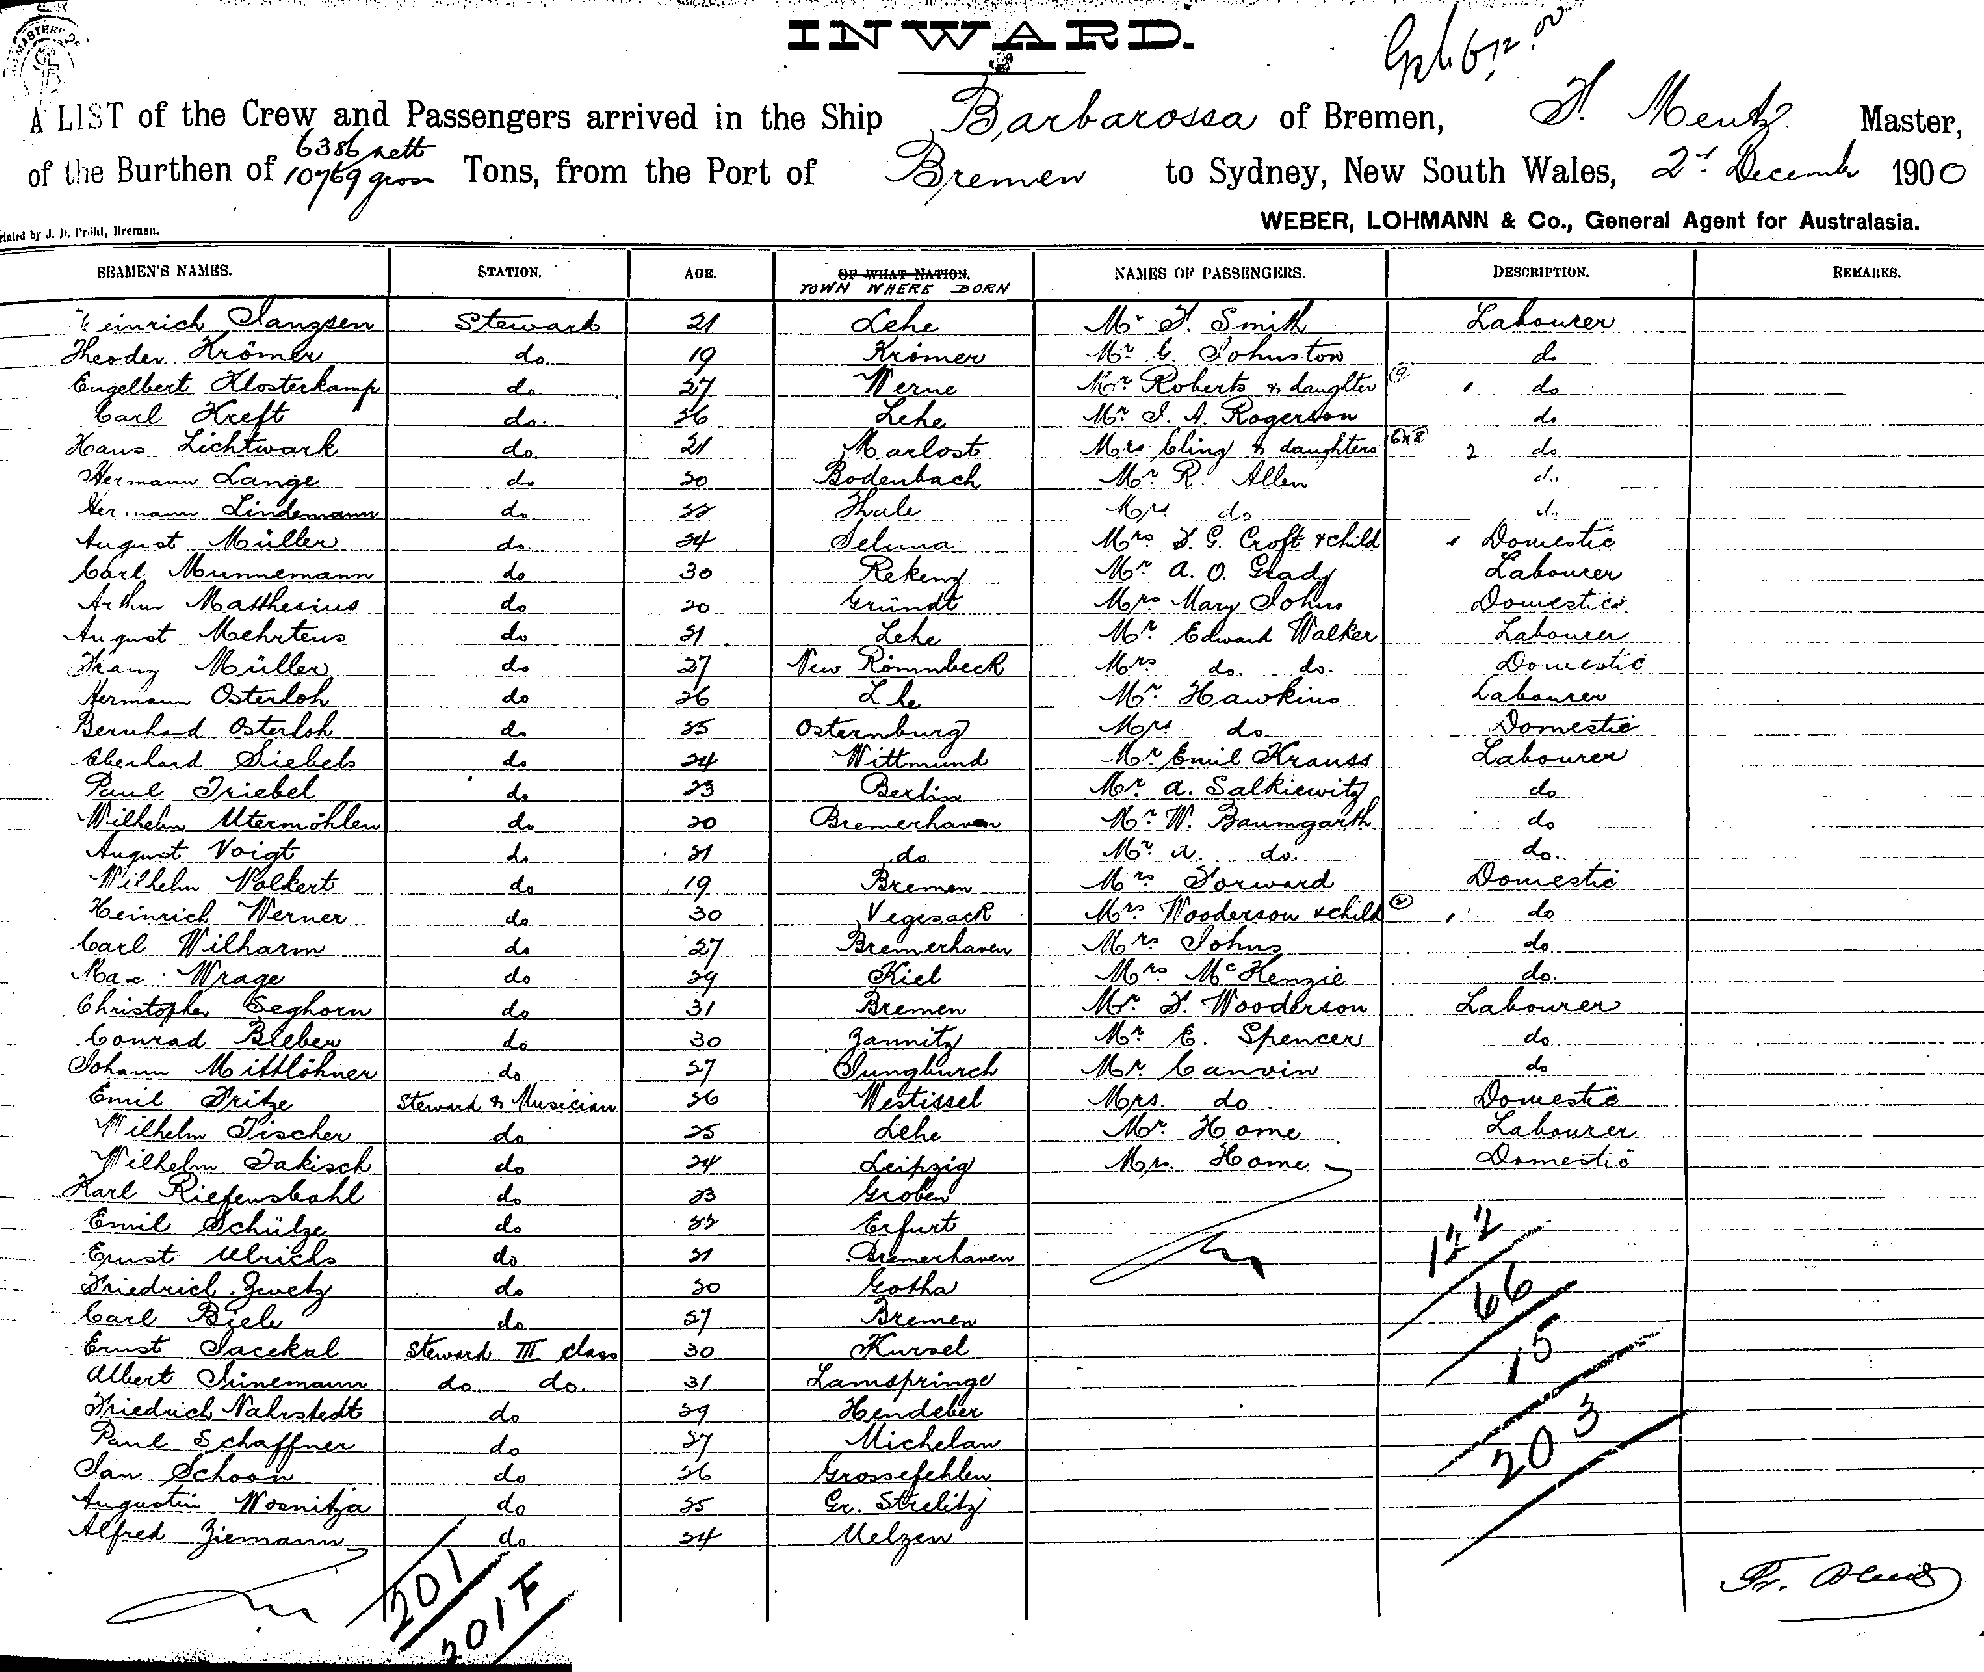 INWARD.
A LIST of the Crew and Passengers arrived in the Ship Barbarossa of Bremen, F. Mentz Master,
6386 nett
of the Burthen of 10769 gross Tons, from the Port of Bremen to Sydney, New South Wales, 2nd December 1900
WEBER, LOHMANN & Co., General Agent for Australasia.
Printed by J. H. Prühl, Bremen.
SEAMEN'S NAMES. STATION. AGE. OF WHAT NATION. NAMES OF PASSENGERS. DESCRIPTION. REMARKS.
TOWN WHERE BORN
Heinrich Janzsen Steward 21 Lehe Mr F. Smith Labourer
Theoder Krömer do. 19 Krömer Mr G. Johnston do
Engelbert Klosterkamp do. 27 Werne Mr Roberts & daughter (9) 1 do
Carl Kreft do. 26 Lehe Mr J. A. Rogerson do
Hans Lichtwark do. 21 Marlost Mrs Cling & daughters 6&8 2 do
Hermann Lange do 20 Bodenbach Mr R. Allen do
Hermann Lindemann do 22 Thale Mrs do do
August Müller do 24 Seluna Mrs F. G. Croft & child 1 Domestic
Carl Munnemann do 30 Rekeng Mr A. O. Grady Labourer
Arthur Matthesius do 20 Gründt Mrs Mary Johns Domestic
August Mehrtens do 21 Lehe Mr Edward Walker Labourer
Franz Müller do 27 New Römnbeck Mrs do. do. Domestic
Hermann Osterloh do 26 Lehe Mr Hawkins Labourer
Bernhard Osterloh do 25 Osternburg Mrs do Domestic
Eberhard Siebels do 24 Wittmund Mr Emil Krauss Labourer
Paul Triebel do 23 Berlin Mr A. Salkiewitz do
Wilhelm Utermöhlen do 20 Bremerhaven Mr W. Baumgarth do
August Voigt do 21 do Mr A. do. do.
Wilhelm Volkert do 19 Bremen Mrs Forward Domestic
Heinrich Werner do 30 Vegesack Mrs Wooderson & child 1 do
Carl Wilharm do 27 Bremerhaven Mrs Johns do.
Max Wrage do 29 Kiel Mrs McKenzie do.
Christopher Seghorn do 31 Bremen Mr F. Wooderson Labourer
Conrad Bleber do 30 Zannitz Mr E. Spencer do.
Johann Mittlöhner do 27 Jungburch Mr Canvin do
Emil Fritze Steward & Musician 26 Westissel Mrs. do Domestic
Wilhelm Fischer do 25 Lehe Mr. Home Labourer
Wilhelm Jakisch do 24 Leipzig Mrs. Home Domestic
Karl Riefenstahl do 23 Groben
Emil Schülze do 22 Erfurt
Ernst Ulrichs do 21 Bremerhaven
Friedrich Zwetz do 20 Gotha
Carl Biele do 27 Bremen
Ernst Jacekal Steward III Class 30 Kursel
Albert Sünemann do. do. 31 Lamspringe
Friedrich Nahrstedt do 29 Hendeber
Paul Schaffner do 27 Michelau
Jan Schoon do 26 Grossefehlen
Augustin Wosnitza do 25 Gr. Strelitz
Alfred Ziemann do 24 Uelzen
122
66
15
203
201
201 F